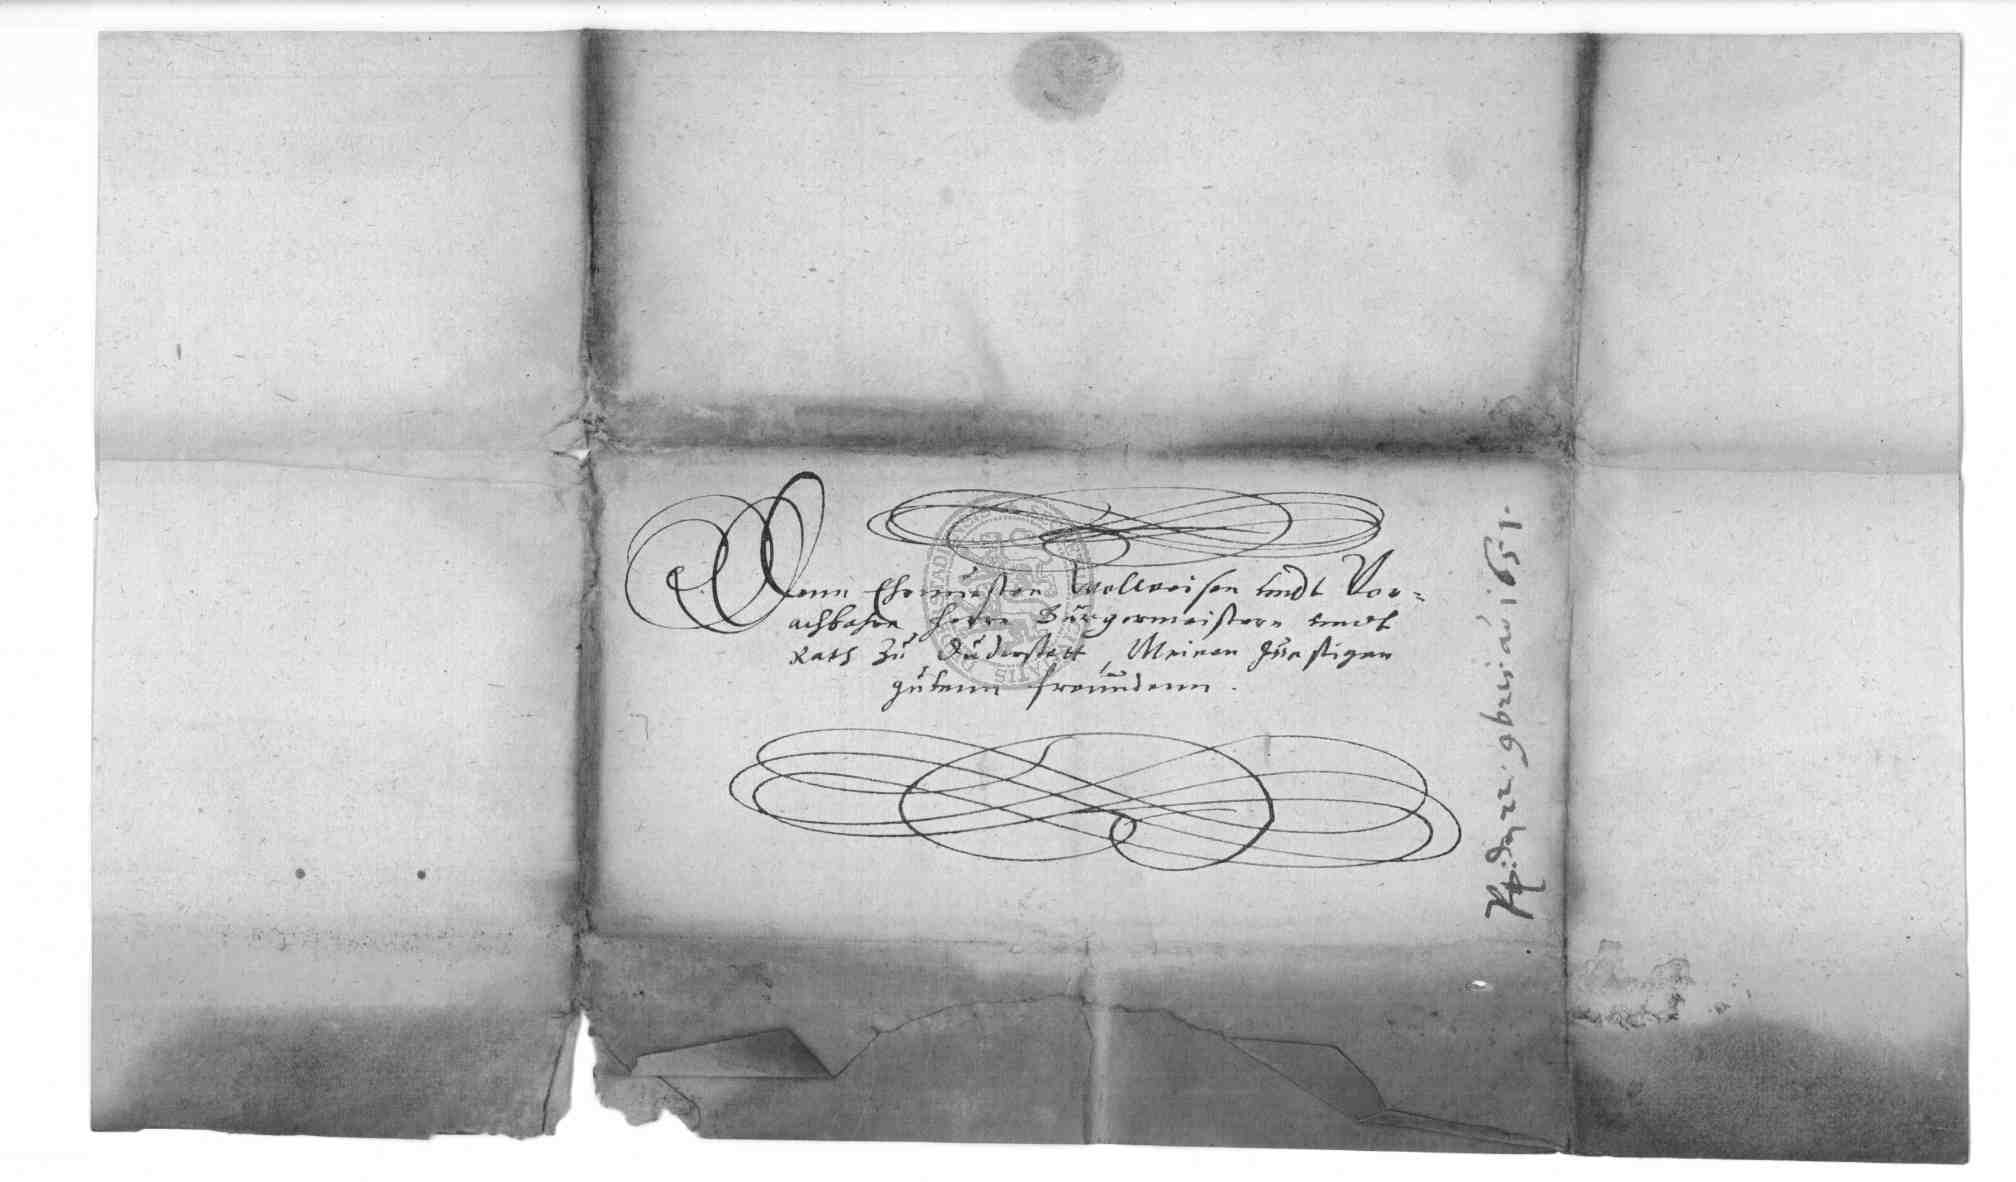 Denn Ehrnuesten Wollweisen undt Vor=
achbahrn Herrn Bürgermeistern undt
Rath zu Duderstatt, Meinen günstigen
gutenn freundenn.
9bris aō 1651.